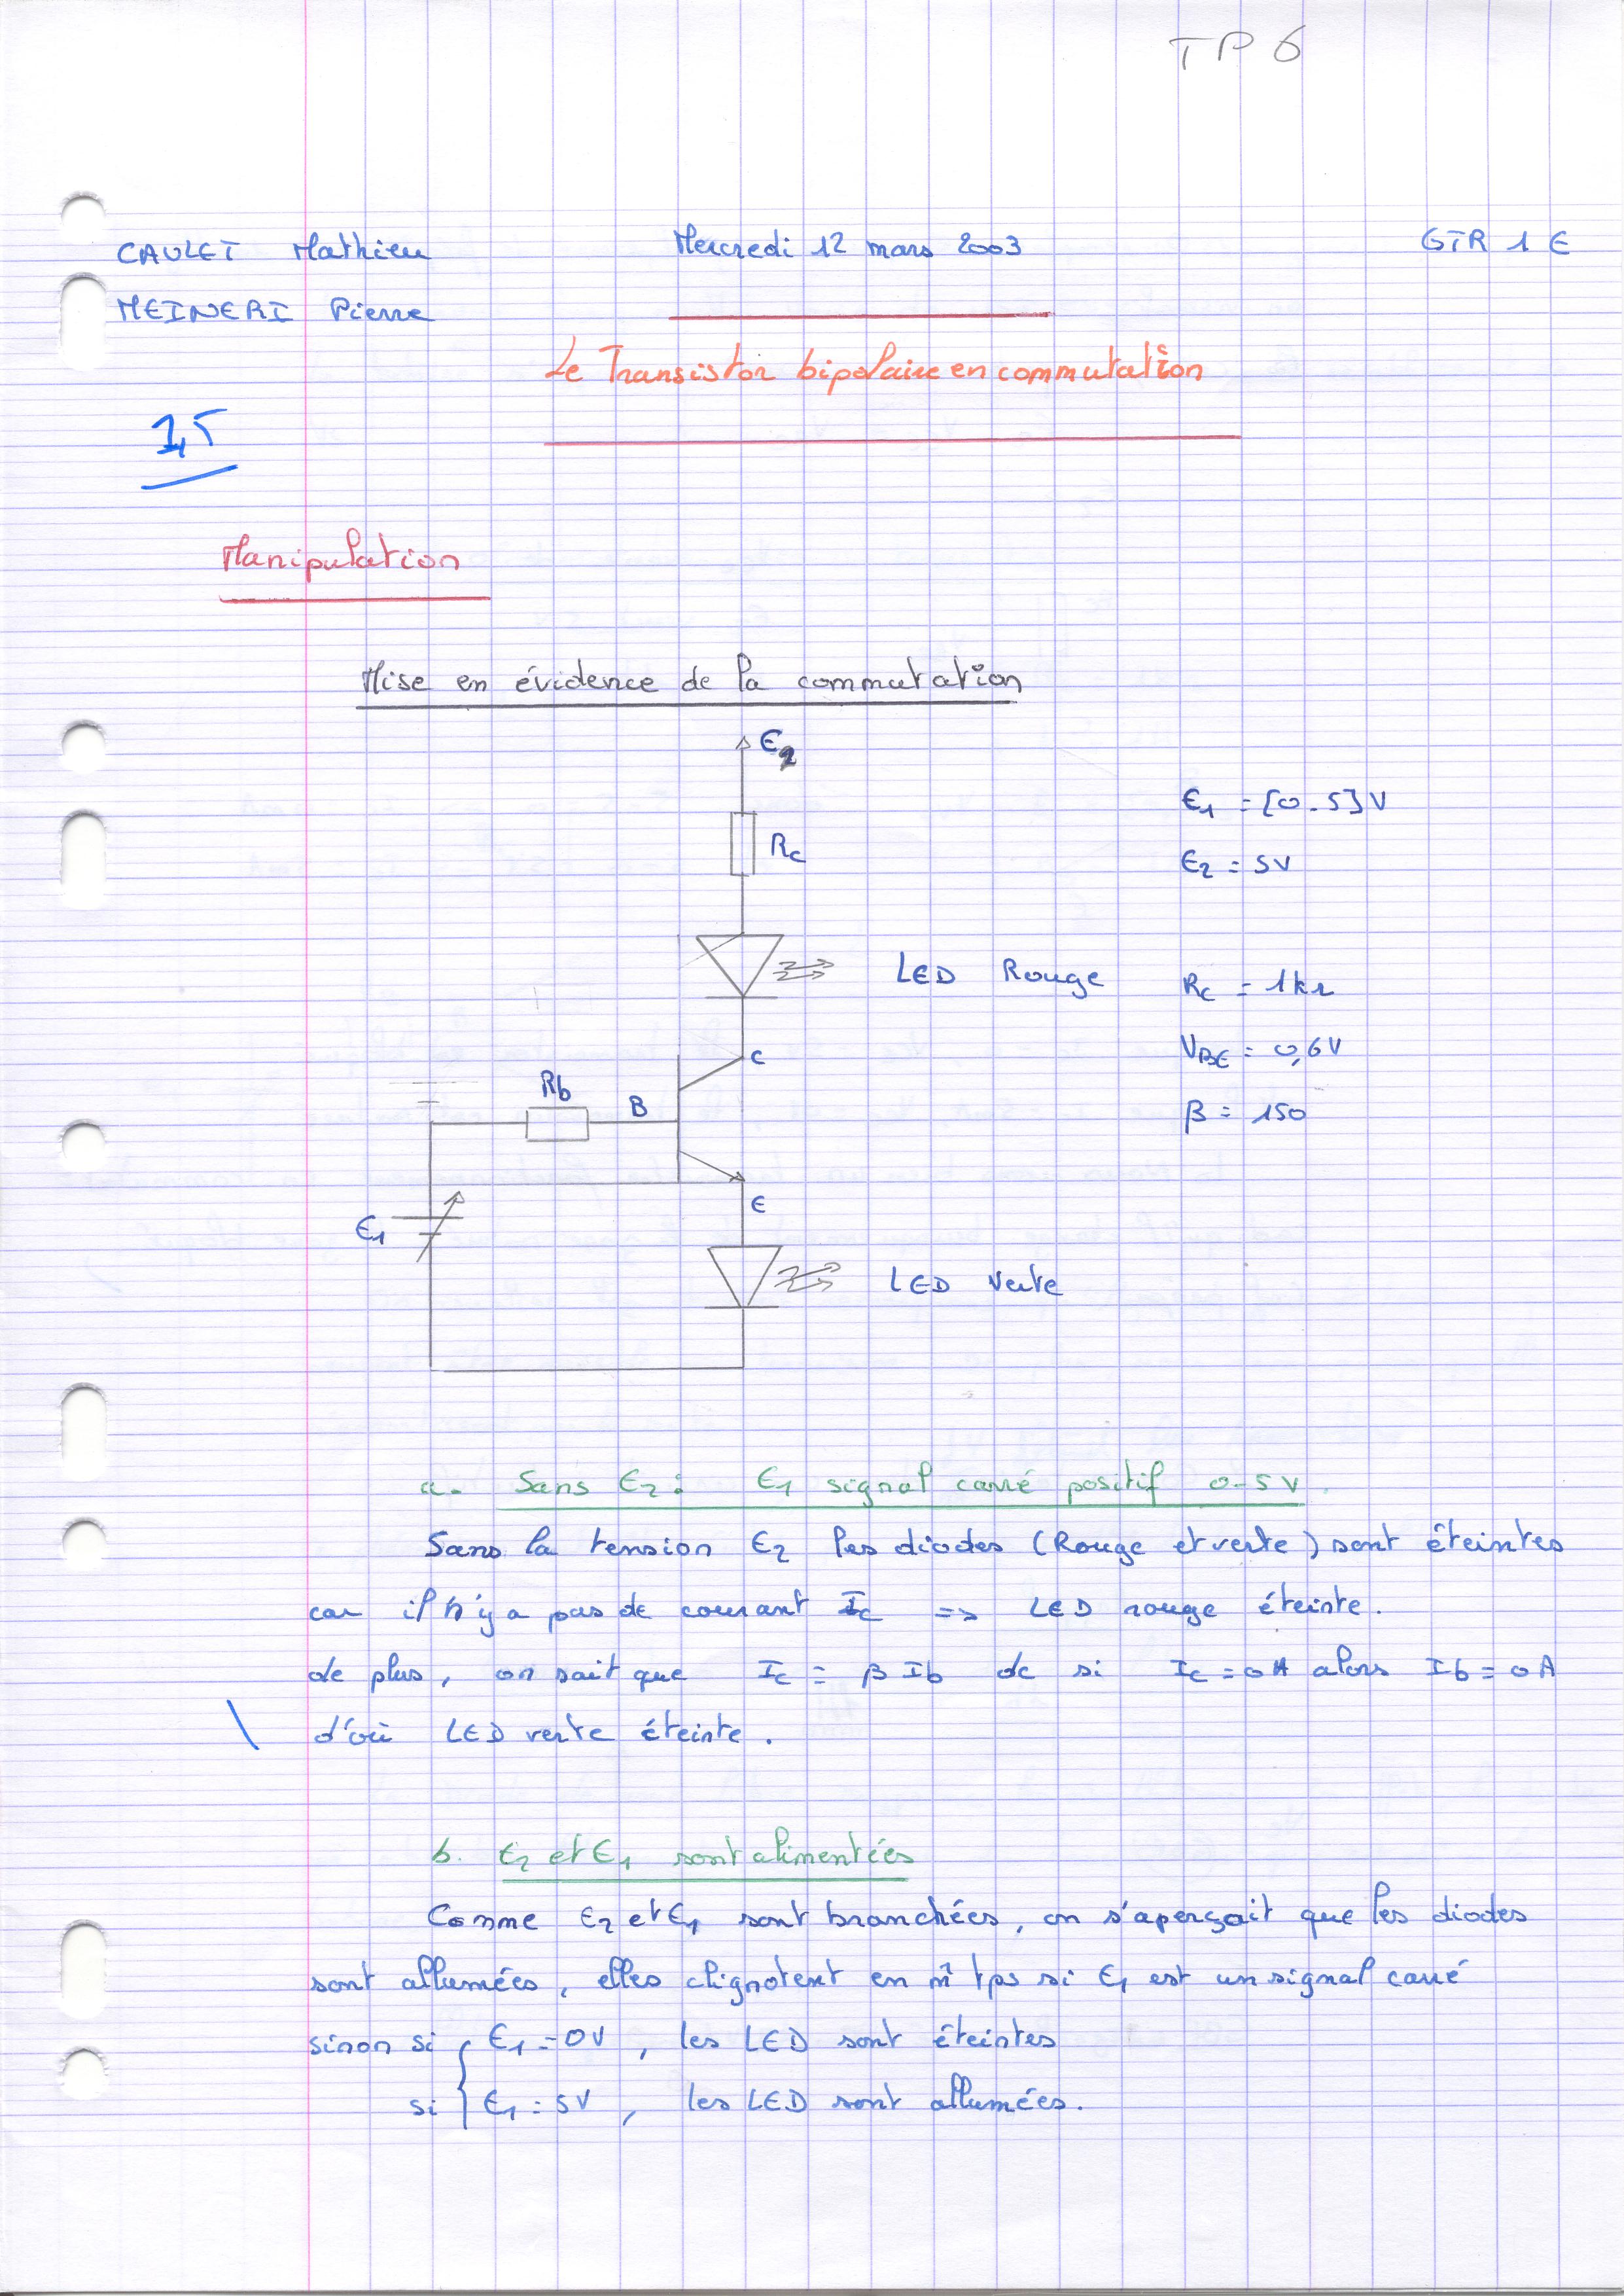 TP 6
CAULET Mathieu Mercredi 12 mars 2003 GTR 1 E
MEINERI Pierre
Le Transistor bipolaire en commutation
Manipulation
Mise en évidence de la commutation
E2
Rc
E1 = [0-5] V
E2 = 5V
LED Rouge
Rc = 1kΩ
VBE = 0,6V
β = 150
C
Rb
B
E
E1
LED Verte
a. Sans E2 : E1 signal carré positif 0-5V.
Sans la tension E2 les diodes (Rouge et verte) sont éteintes
car il n'y a pas de courant Ic => LED rouge éteinte.
de plus, on sait que Ic = β Ib dc si Ic = 0A alors Ib = 0A
d'où LED verte éteinte.
b. E2 et E1 sont alimentées
Comme E2 et E1 sont branchées, on s'aperçoit que les diodes
sont allumées, elles clignotent en m̂ tps si E1 est un signal carré
sinon si { E1 = 0V, les LED sont éteintes
si { E1 = 5V, les LED sont allumées.